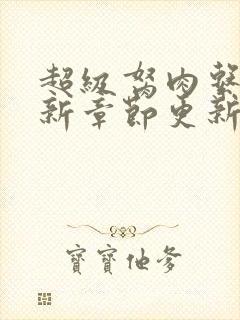 超級弩肉
新章節更新
寶寶他爹